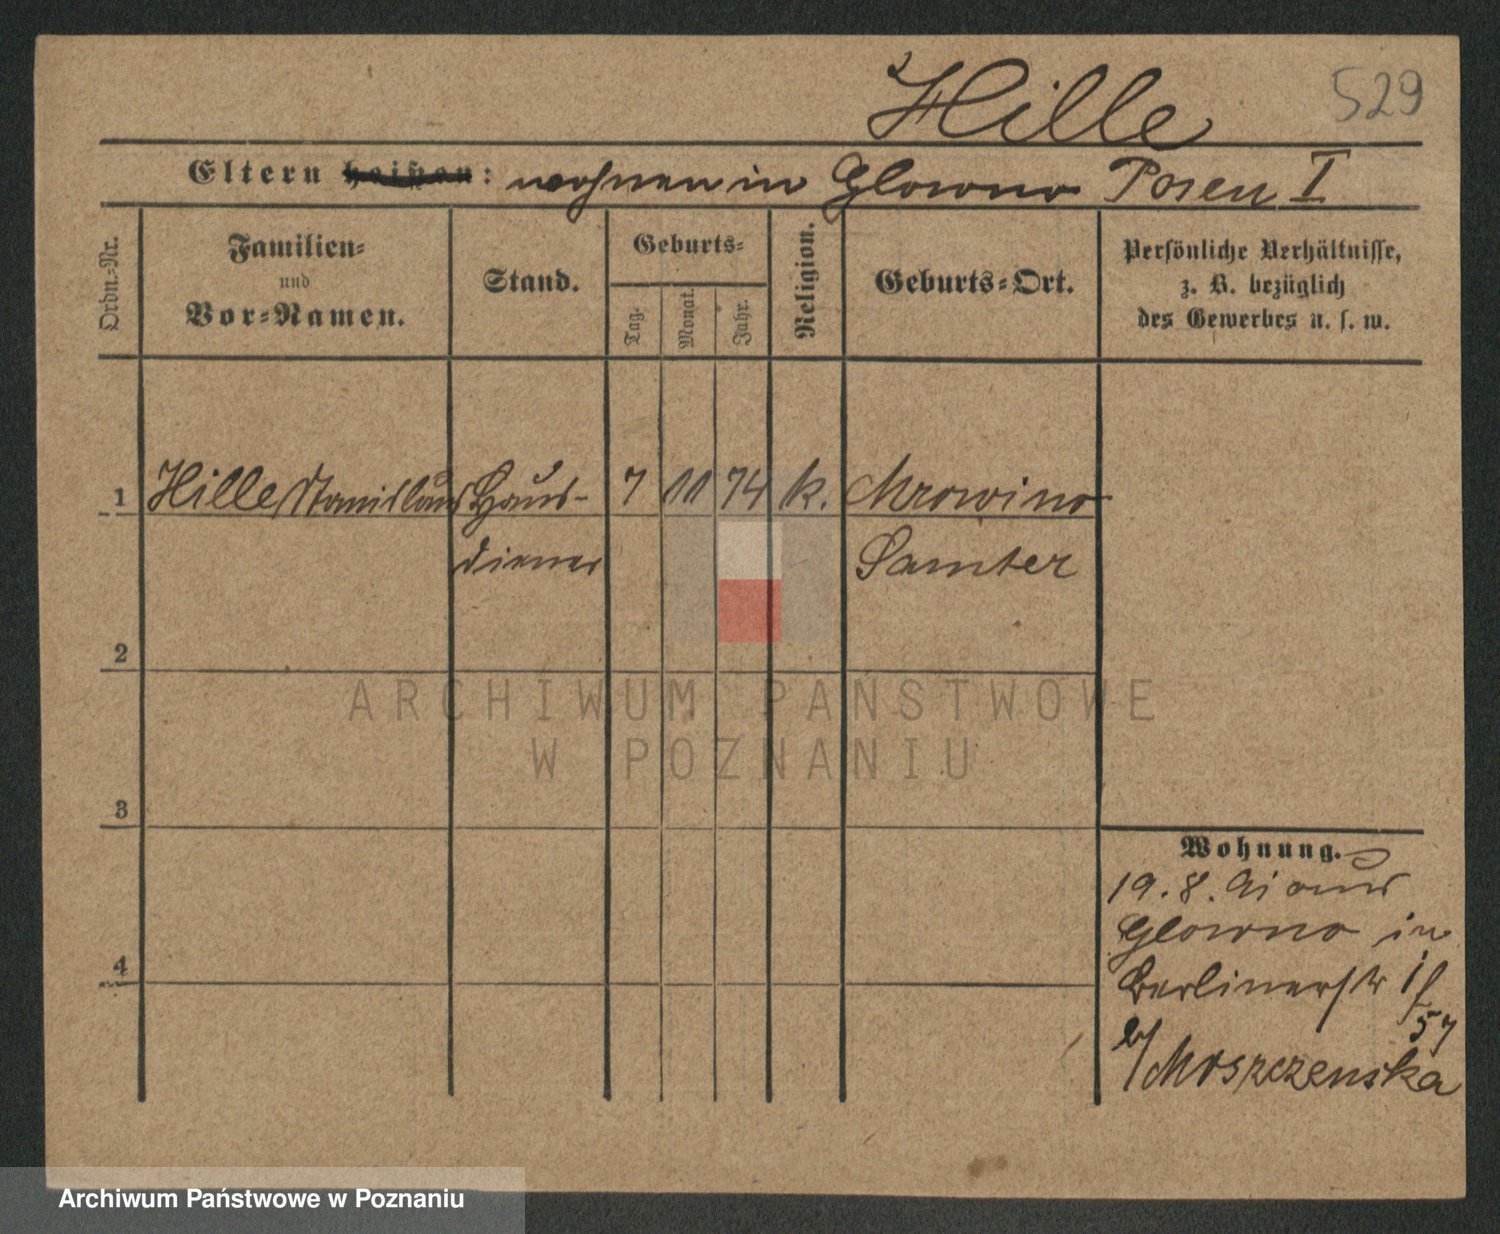 Hille 529
Eltern heißen: wohnen in Glowno Posen I
Ordn.-Nr.
Familien-
und
Vor-Namen.
Stand.
Geburts-
Tag.
Monat.
Jahr.
Religion.
Geburts-Ort.
Persönliche Verhältnisse,
z. B. bezüglich
des Gewerbes u. s. w.
1 Hille Stanislaus Haus- 7 11 74 k. Mrowino
diener Samter
2
ARCHIWUM PAŃSTWOWE
W POZNANIU
3
4
Wohnung.
19. 8. 91 aus
Glowno in
Berlinerstr
57
b/ Moszczenska
Archiwum Państwowe w Poznaniu